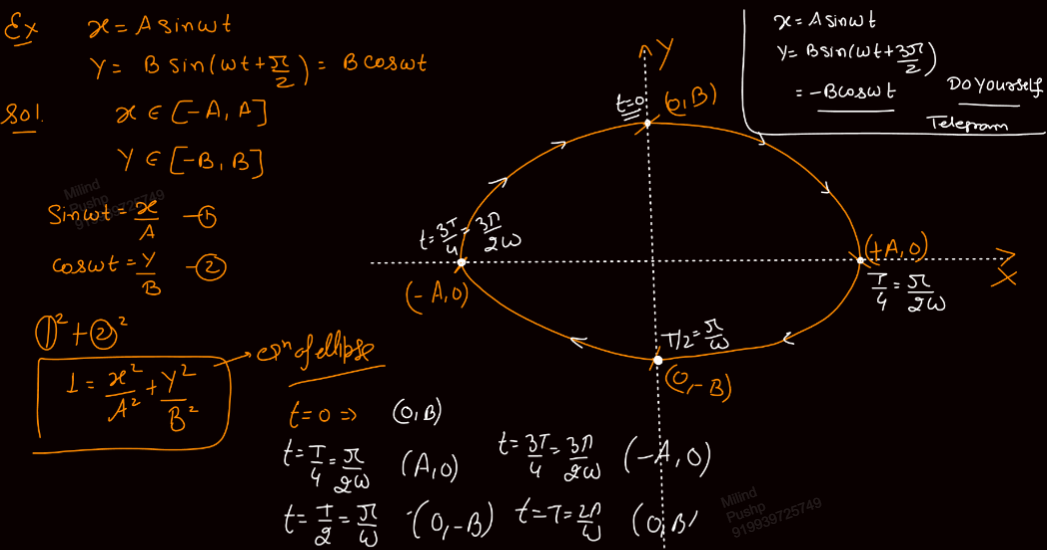 Ex x = A sinωt
Y = B sin(ωt + π/2) = B cosωt
Sol. x ∈ [-A, A]
Y ∈ [-B, B]
Sinωt = x/A -①
cosωt = Y/B -②
①² + ②²
1 = x²/A² + Y²/B² → eqⁿ of ellipse
t=0 ⇒ (0, B)
t = T/4 = π/2ω (A, 0)
t = T/2 = π/ω (0, -B)
t = 3T/4 = 3π/2ω (-A, 0)
t = T = 2π/ω (0, B)
Y
t=0
(0, B)
(+A, 0)
X
T/4 = π/2ω
T/2 = π/ω
(0, -B)
t = 3T/4 = 3π/2ω
(-A, 0)
x = A sinωt
Y = B sin(ωt + 3π/2)
= -B cosωt
Do Yourself
Telegram
Milind
Pushp
919939725749
Milind
Pushp
919939725749